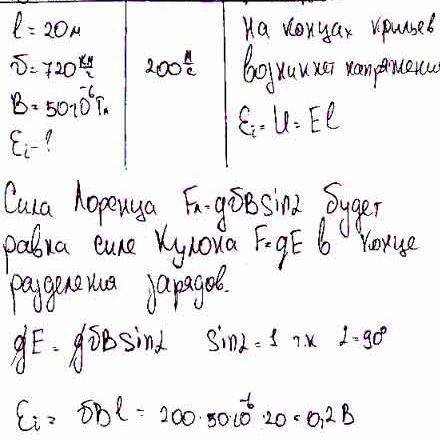 l = 20 м
υ = 720 км/ч
200 м/с
B = 50·10⁻⁶ Тл
Ɛi - ?
На концах крыльев
возникнет напряжение
Ɛi = U = El
Сила Лоренца Fл = qυBsinα будет
равна силе Кулона F = qE в конце
разделения зарядов.
qE = qυBsinα sinα = 1 т.к α = 90°
Ɛi = υBl = 200·50·10⁻⁶·20 = 0,2 В